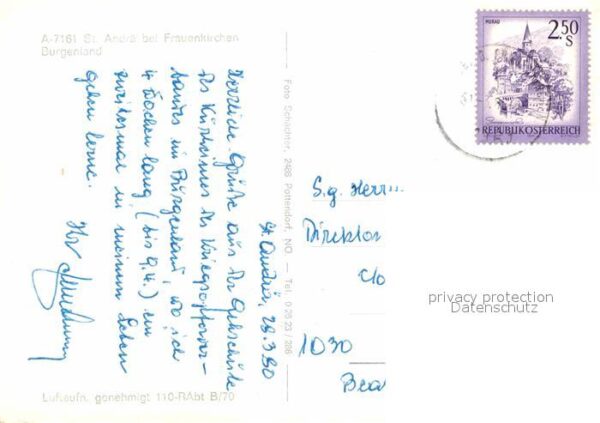 A-7161 St. Andrä bei Frauenkirchen
Burgenland
St. Andrä, 28.3.80
Herzliche Grüße aus der Gehschule
des Kurheimes des Kriegsopferver-
bandes im Burgenland, wo ich
4 Wochen lang (bis 9.4.) ein
zweitesmal in meinem Leben
gehen lerne.
Ihr
Luftaufn. genehmigt 110-RAbt B/70
Foto Schaidner, 2486 Pottendorf, NÖ — Tel. 0 26 23 / 286
MURAU
2.50
S
REPUBLIK ÖSTERREICH
S.g. Herrn
Direktor
1030
privacy protection
Datenschutz